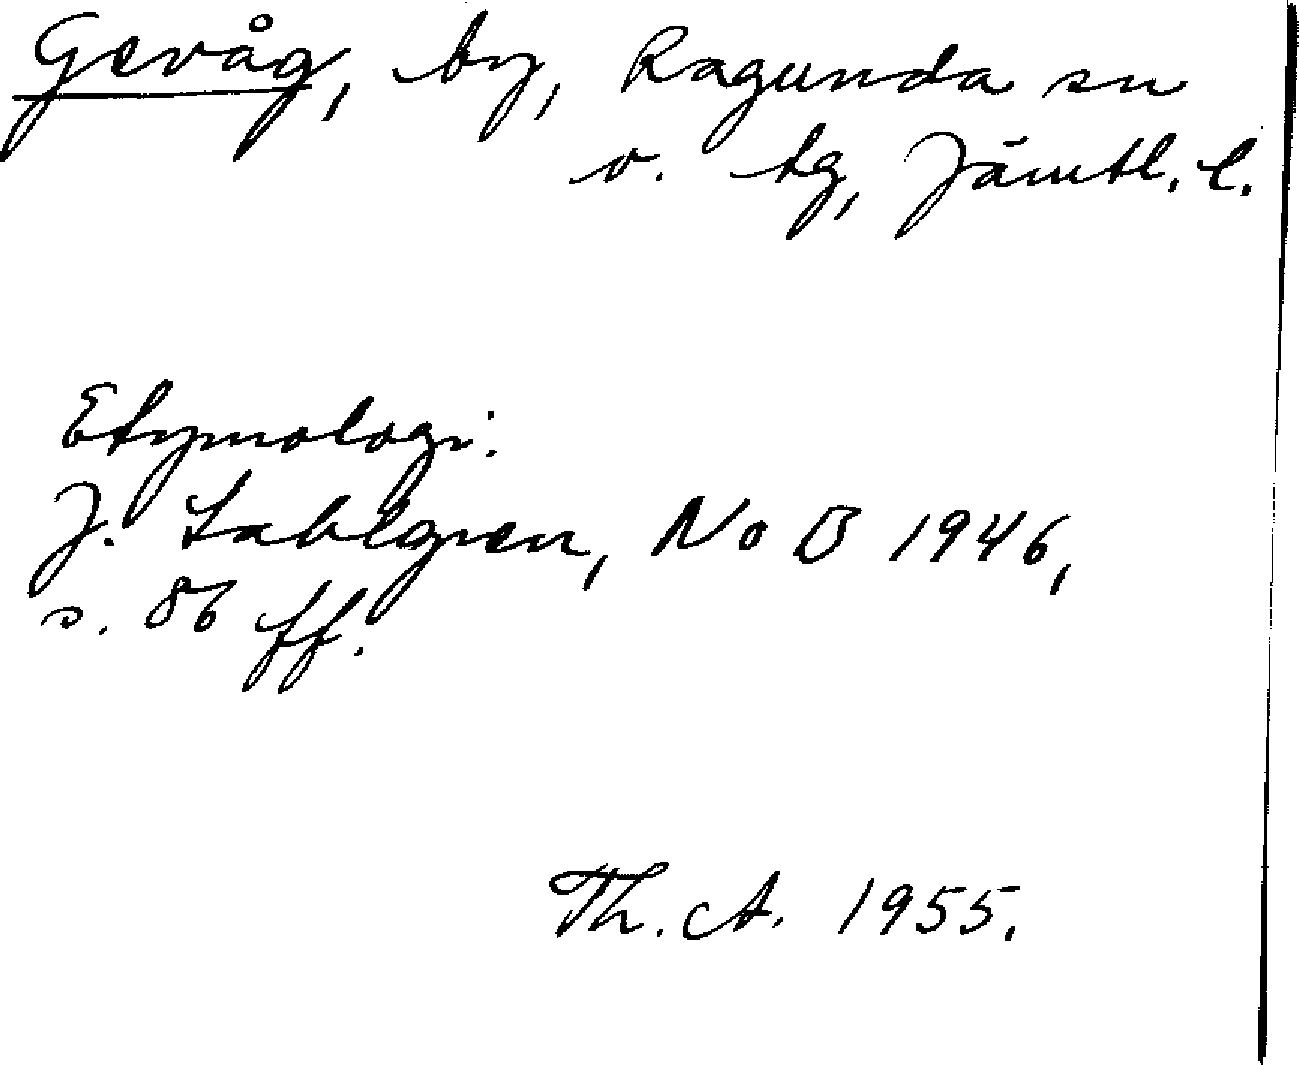 Gevåg, by, Ragunda sn
o. tg, Jämtl. l.
Etymologi:
J. Sahlgren, NoB 1946,
s. 86 ff.
Th. A. 1955.